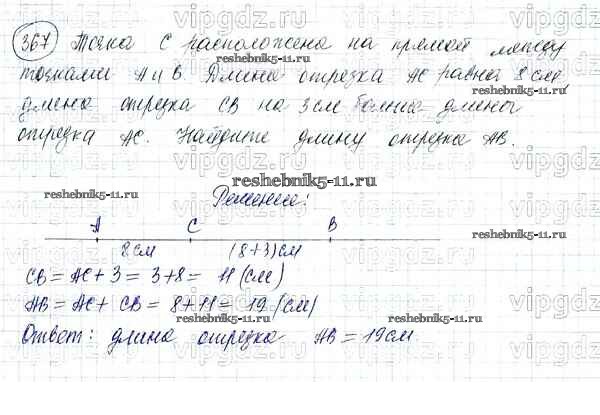 367 Точка С расположена на прямой между
точками А и В. Длина отрезка АС равна 8 см,
длина отрезка СВ на 3 см больше длины
отрезка АС. Найдите длину отрезка АВ.
Решение:
А С В
8 см (8+3) см
СВ = АС + 3 = 3 + 8 = 11 (см)
АВ = АС + СВ = 8 + 11 = 19 (см)
Ответ: длина отрезка АВ = 19 см
vipgdz.ru
reshebnik5-11.ru